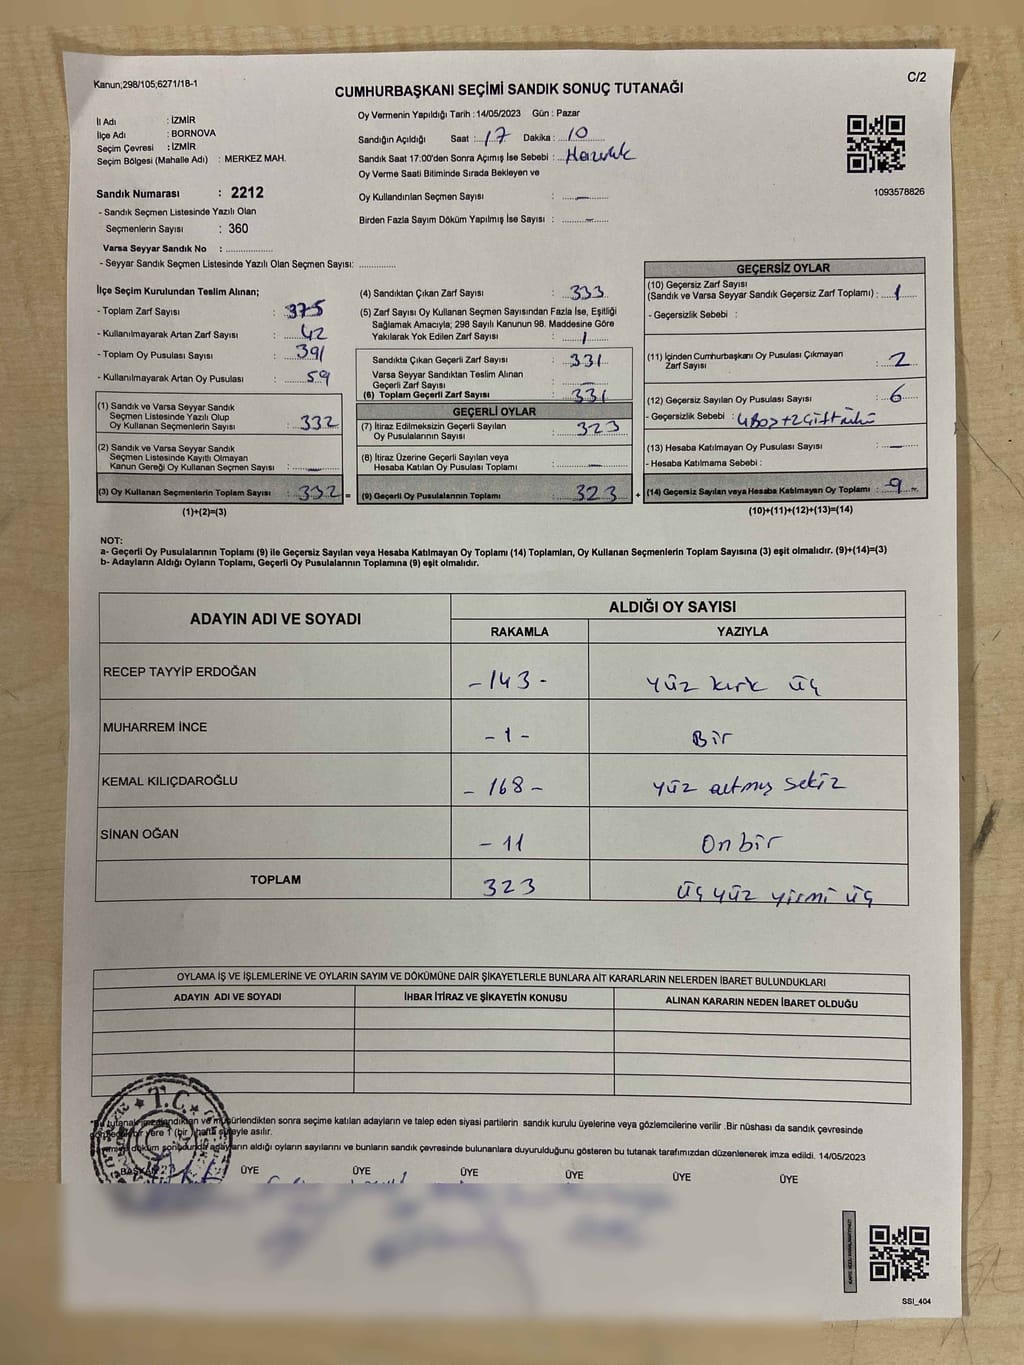 Kanun;298/105;6271/18-1
C/2
CUMHURBAŞKANI SEÇİMİ SANDIK SONUÇ TUTANAĞI
İl Adı : İZMİR
İlçe Adı : BORNOVA
Seçim Çevresi : İZMİR
Seçim Bölgesi (Mahalle Adı) : MERKEZ MAH.
Sandık Numarası : 2212
- Sandık Seçmen Listesinde Yazılı Olan
Seçmenlerin Sayısı : 360
Varsa Seyyar Sandık No : ..............
- Seyyar Sandık Seçmen Listesinde Yazılı Olan Seçmen Sayısı: ............
Oy Vermenin Yapıldığı Tarih : 14/05/2023 Gün : Pazar
Sandığın Açıldığı Saat : 17 Dakika : 10
Sandık Saat 17:00'den Sonra Açımış İse Sebebi : Hazırlık
Oy Verme Saati Bitiminde Sırada Bekleyen ve
Oy Kullandırılan Seçmen Sayısı : —
Birden Fazla Sayım Döküm Yapılmış İse Sayısı : —
1093578826
İlçe Seçim Kurulundan Teslim Alınan;
- Toplam Zarf Sayısı : 375
- Kullanılmayarak Artan Zarf Sayısı : 42
- Toplam Oy Pusulası Sayısı : 391
- Kullanılmayarak Artan Oy Pusulası : 59
(1) Sandık ve Varsa Seyyar Sandık
Seçmen Listesinde Yazılı Olup
Oy Kullanan Seçmenlerin Sayısı : 332
(2) Sandık ve Varsa Seyyar Sandık
Seçmen Listesinde Kayıtlı Olmayan
Kanun Gereği Oy Kullanan Seçmen Sayısı : —
(3) Oy Kullanan Seçmenlerin Toplam Sayısı : 332 =
(1)+(2)=(3)
(4) Sandıktan Çıkan Zarf Sayısı : 333
(5) Zarf Sayısı Oy Kullanan Seçmen Sayısından Fazla İse, Eşitliği
Sağlamak Amacıyla; 298 Sayılı Kanunun 98. Maddesine Göre
Yakılarak Yok Edilen Zarf Sayısı : 1
Sandıkta Çıkan Geçerli Zarf Sayısı : 331
Varsa Seyyar Sandıktan Teslim Alınan
Geçerli Zarf Sayısı : —
(6) Toplam Geçerli Zarf Sayısı : 331
GEÇERLİ OYLAR
(7) İtiraz Edilmeksizin Geçerli Sayılan
Oy Pusulalarının Sayısı : 323
(8) İtiraz Üzerine Geçerli Sayılan veya
Hesaba Katılan Oy Pusulası Toplamı : —
(9) Geçerli Oy Pusulalarının Toplamı : 323 +
GEÇERSİZ OYLAR
(10) Geçersiz Zarf Sayısı
(Sandık ve Varsa Seyyar Sandık Geçersiz Zarf Toplamı) : 1
- Geçersizlik Sebebi :
(11) İçinden Cumhurbaşkanı Oy Pusulası Çıkmayan
Zarf Sayısı : 2
(12) Geçersiz Sayılan Oy Pusulası Sayısı : 6
- Geçersizlik Sebebi : 4 Boş + 2 Çift mühür
(13) Hesaba Katılmayan Oy Pusulası Sayısı : —
- Hesaba Katılmama Sebebi :
(14) Geçersiz Sayılan veya Hesaba Katılmayan Oy Toplamı : 9
(10)+(11)+(12)+(13)=(14)
NOT:
a- Geçerli Oy Pusulalarının Toplamı (9) ile Geçersiz Sayılan veya Hesaba Katılmayan Oy Toplamı (14) Toplamları, Oy Kullanan Seçmenlerin Toplam Sayısına (3) eşit olmalıdır. (9)+(14)=(3)
b- Adayların Aldığı Oyların Toplamı, Geçerli Oy Pusulalarının Toplamına (9) eşit olmalıdır.
ADAYIN ADI VE SOYADI ALDIĞI OY SAYISI
RAKAMLA YAZIYLA
RECEP TAYYİP ERDOĞAN - 143 - Yüz kırk üç
MUHARREM İNCE - 1 - Bir
KEMAL KILIÇDAROĞLU - 168 - Yüz altmış sekiz
SİNAN OĞAN - 11 On bir
TOPLAM 323 Üç yüz yirmi üç
OYLAMA İŞ VE İŞLEMLERİNE VE OYLARIN SAYIM VE DÖKÜMÜNE DAİR ŞİKAYETLERLE BUNLARA AİT KARARLARIN NELERDEN İBARET BULUNDUKLARI
ADAYIN ADI VE SOYADI İHBAR İTİRAZ VE ŞİKAYETİN KONUSU ALINAN KARARIN NEDEN İBARET OLDUĞU
T.C.
sonra seçime katılan adayların ve talep eden siyasi partilerin sandık kurulu üyelerine veya gözlemcilerine verilir .Bir nüshası da sandık çevresinde
1 (bir) hafta süreyle asılır.
döküm sonucunda adayların aldığı oyların sayılarını ve bunların sandık çevresinde bulunanlara duyurulduğunu gösteren bu tutanak tarafımızdan düzenlenerek imza edildi. 14/05/2023
BAŞKAN ÜYE ÜYE ÜYE ÜYE ÜYE ÜYE
SSI_404